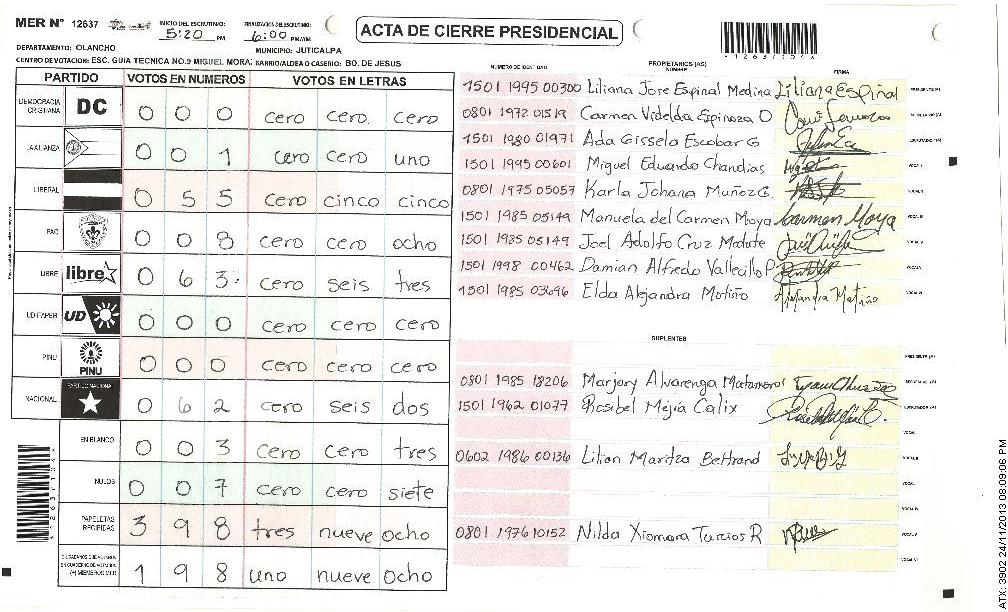 MER Nº 12637
INICIO DEL ESCRUTINIO: 5:20 PM
FINALIZACION DEL ESCRUTINIO: 6:00 PM/AM
ACTA DE CIERRE PRESIDENCIAL
DEPARTAMENTO: OLANCHO
MUNICIPIO: JUTICALPA
CENTRO DE VOTACION: ESC. GUIA TECNICA NO.9 MIGUEL MORA BARRIO/ALDEA O CASERIO: BO. DE JESUS
*12637109*
PARTIDO VOTOS EN NUMEROS VOTOS EN LETRAS
DEMOCRACIA CRISTIANA DC 0 0 0 cero cero cero
LA ALIANZA 0 0 1 cero cero uno
LIBERAL 0 5 5 cero cinco cinco
PAC 0 0 8 cero cero ocho
LIBRE libre 0 6 3 cero seis tres
UD FAPER UD 0 0 0 cero cero cero
PINU PINU 0 0 0 cero cero cero
NACIONAL PARTIDO NACIONAL 0 6 2 cero seis dos
EN BLANCO 0 0 3 cero cero tres
NULOS 0 0 7 cero cero siete
PAPELETAS RECIBIDAS 3 9 8 tres nueve ocho
CIUDADANOS QUE VOTARON EN CUADERNO DE VOTACION (+) MIEMBROS MER 1 9 8 uno nueve ocho
NUMERO DE IDENTIDAD PROPIETARIOS (AS) NOMBRE FIRMA
1501 1995 00300 Liliana Jose Espinal Medina Liliana Espinal PRESIDENTE (A)
0801 1972 01519 Carmen Videlda Espinoza O SECRETARIO (A)
1501 1980 01971 Ada Gissela Escobar G ESCRUTADOR (A)
1501 1995 00601 Miguel Eduardo Chandias VOCAL I
0801 1975 05057 Karla Johana Muñoz G. VOCAL II
1501 1985 05149 Manuela del Carmen Moya Carmen Moya VOCAL III
1501 1985 05149 Joel Adolfo Cruz Matute
1501 1998 00462 Damian Alfredo Vallecillo P. VOCAL V
1501 1985 03696 Elda Alejandra Motiño Alejandra Motiño VOCAL VI
SUPLENTES
PRESIDENTE (A)
0801 1985 18206 Marjory Alvarenga Matamoros SECRETARIO (A)
1501 1962 01077 Rosibel Mejia Calix ESCRUTADOR (A)
VOCAL I
0602 1986 00136 Lilian Maritza Bertrand VOCAL II
VOCAL III
VOCAL IV
0801 1976 10152 Nilda Xiomara Turcios R VOCAL V
VOCAL VI
ATX: 3902 24/11/2013 08:09:06 PM